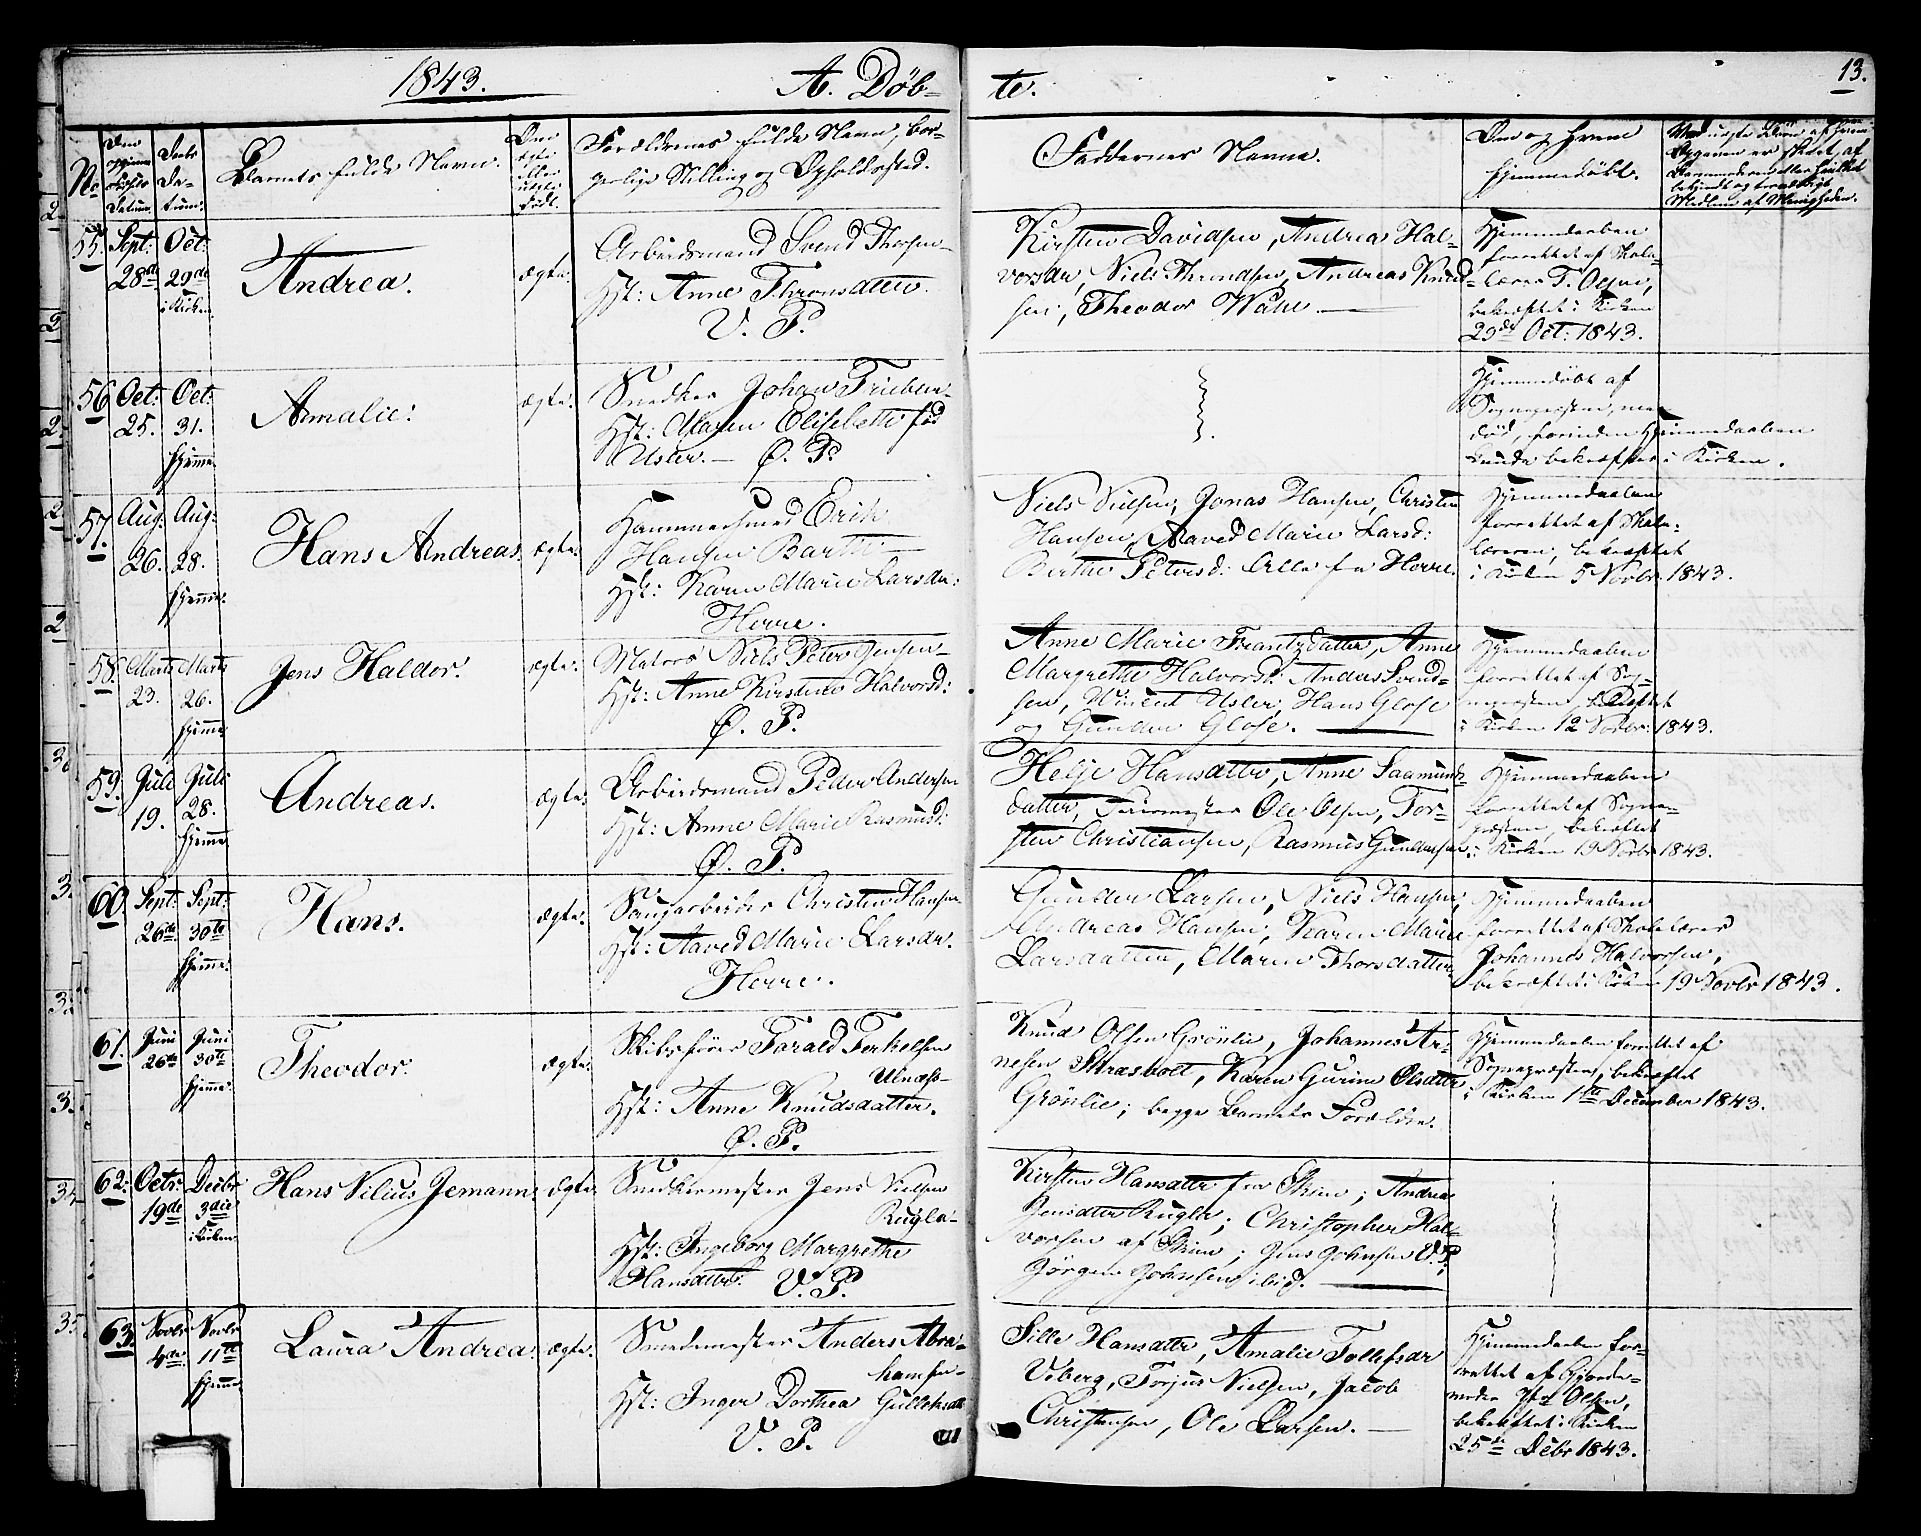 1843. A. Døb- te. 13.
No
Barnets fulde Navn.
Forældrenes fulde Navn, bor-
gerlige Stilling og Opholdssted.
Faddernes Navne.
Om og hvem
hjemmedøbt.
55. Sept: 28de Oct: 29de i Kirken
Andrea. ægte.
Arbeidsmand Svend Thorsen
Hst: Anne Thronsdatter.
V. P.
Kirsten Davidsen, Andrea Hal-
vorsdr, Niels Throndsen, Andreas Knud-
sen, Theodor Wahl.
Hjemmedaaben
forrettet af Skole-
lærer T. Olsen,
bekræftet i Kirken
29de Oct: 1843.
56 Oct: 25. Oct: 31. Hjemme
Amalie. ægte.
Snedker Johan
Hst: Maren Elisabeth fød
Usler. Ø. P.
Hjemmedøbt af
Sognepræsten,
død, forinden Hjemmedaaben
kunde bekræftes i Kirken.
57. Aug: 26. Aug: 28. Hjemme.
Hans Andreas. ægte.
Hammersmed Erik
Hansen Barth
Hst: Karen Marie Larsdr:
Herre.
Niels Nielsen, Jonas Hansen, Christen
Hansen, Aaved Marie Larsd:
Berthe Petersd: Alle fra Herre.
Hjemmedaaben
forrettet af Skole-
læreren, bekræftet
i Kirken 5 Novbr. 1843.
58. Marts 23. Marts 26. Hjemme
Jens Haldor. ægte.
Matros Niels Peter Jensen
Hst: Anne Kirstine Halvorsd:
Ø. P.
Anne Marie Frantzdatter, Anne
Margrethe Halvorsd: Anders Svend-
sen, Wincent Usler, Hans Glose
og Gunder Glose.
Hjemmedaaben
forrettet af Sog-
nepræsten, bekræftet
i Kirken 12 Novbr: 1843.
59. Juli 19. Juli 28. Hjemme
Andreas. ægte.
Arbeidsmand Peder Andersen
Hst: Anne Marie Rasmusd:
Ø. P.
Helje Hansdatter, Anne Saamund-
datter, Ole Olsen, Tor-
sten Christiansen, Rasmus Gundersen.
Hjemmedaaben
forrettet af Sogne-
præsten, bekræftet
i Kirken 19 Novbr 1843.
60. Sept: 26de Sept: 30te Hjemme.
Hans. ægte.
Saugarbeider Christen Hansen
Hst: Aaved Marie Larsdr.
Herre.
Gunder Larsen, Niels Hansen,
Andreas Hansen, Karen Marie
Larsdatter, Maren Thorsdatter.
Hjemmedaaben
forrettet af Skolelærer
Johannes Halvorsen,
bekræftet i Kirken 19 Novbr 1843.
61. Juni 26de Juni 30te Hjemme.
Theodor. ægte.
Skibsfører Tarald Terkelsen
Ulnæss
Hst: Anne Knudsdatter.
Ø. P.
Knud Olsen Grönlie, Johannes Ar-
nesen Straxboel, Karen Gurine Olsdatter
Grönlie; begge Barnets Forældre.
Hjemmedaaben forrettet af
Sognepræsten, bekræftet
i Kirken 1te December 1843.
62. Octr: 19de Decbr 3die i Kirken
Hans Nilius Jemann. ægte.
Snedkermester Jens Nielsen
Rugla
Hst: Ingeborg Margrethe
Hansdatter. V. P.
Kirsten Hansdatter fra Skien; Andrea
Jensdatter Rugla; Christopher Hal-
vorsen af Skien; Jens Johnsen V. P.,
Jörgen Johnsen ibid.
63. Novbr 4de Novbr 11te Hjemme
Laura Andrea. ægte.
Smedemester Anders Abra-
hamsen
Hst: Inger Dorthea Gulleksdatter
V. P.
Sille Hansdatter, Amalie Tollefsdr
Veberg, Torjus Nielsen, Jacob
Christensen, Ole Larsen.
Hjemmedaaben for-
rettet af Gjorde-
moder Olsen,
bekræftet i Kirken
25de Decbr 1843.